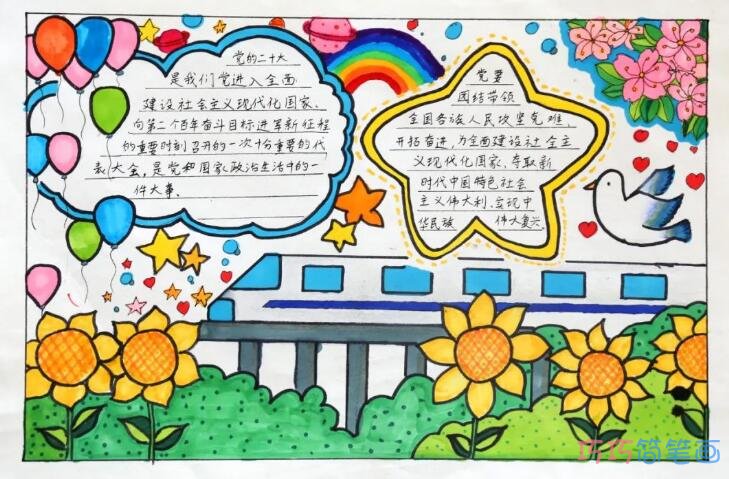 党的二十大
是我们党进入全面
建设社会主义现代化国家、
向第二个百年奋斗目标进军新征程
的重要时刻召开的一次十分重要的代
表大会,是党和国家政治生活中的一
件大事.
党要
团结带领
全国各族人民攻坚克难,
开拓奋进,为全面建设社会主
义现代化国家、夺取新
时代中国特色社会
主义伟大利、实现中
华民族 伟大复兴.
巧巧简笔画